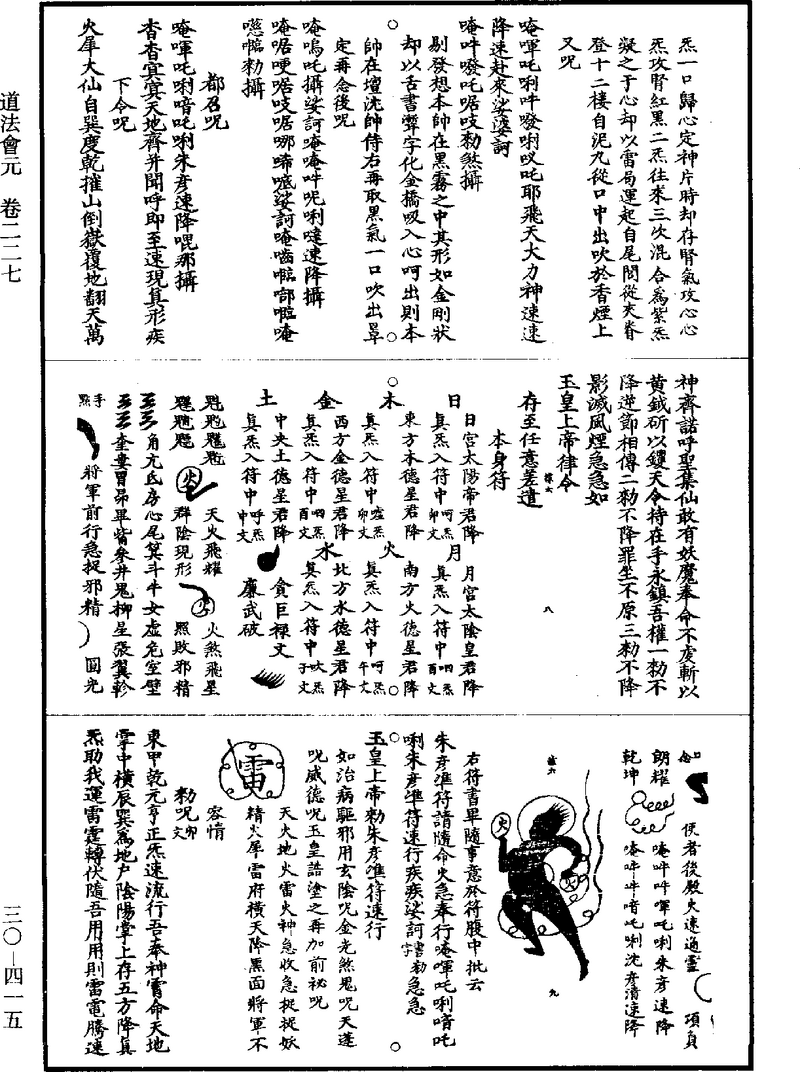 道法會元　卷二二七
三〇—四一五
炁一口歸心定神片時却存腎氣攻心心
炁攻腎紅黑二炁往來三次混合爲紫炁
凝之于心却以雷局運起自尾閭從夾脊
登十二樓自泥丸從口中出吹於香煙上
又呪
唵㖶吒唎吽發唎㕧吒耶飛天大力神速速
降速赴來娑婆訶
唵吽發吒㖶吱勑煞攝
剔發想本帥在黑霧之中其形如金剛狀
却以舌書霻字化金橋吸入心呵出則本
帥在壇沈帥侍右再取黑氣一口吹出罩
定再念後呪
唵嗚吒攝娑訶唵唵吽呢唎噠速降攝
都召呪
唵㖶吒唎喑吒唎朱彥速降呢那攝
杳杳冥冥天地齊并聞呼即至速現真形疾
下令呪
火犀大仙自巽慶乾摧山倒嶽覆地翻天萬
神齊諾呼聖集仙敢有妖魔奉命不虔斬以
黃鉞斫以钁天令持在手永鎮吾權一勑不
降逆節相傳二勑不降罪坐不原三勑不降
影滅風煙急急如
玉皇上帝律令
存至任意差遣
本身符
日　日宮太陽帝君降
真炁入符中　呵炁卯文
月　月宮太陰皇君降
真炁入符中　呬炁酉文
木　東方木德星君降
真炁入符中　噓炁卯文
火　南方火德星君降
真炁入符中　呵炁午文
金　西方金德星君降
真炁入符中　呬炁酉文
水　北方水德星君降
真炁入符中　吹炁子文
土　中央土德星君降
真炁入符中　呼炁中文
貪巨祿文
廉武破
天火飛耀　火煞飛星
火　群陰現形　火　照敗邪精
角亢氐房心尾箕斗牛女虛危室壁
奎婁胃昴畢觜參井鬼柳星張翼軫
手㸃　將軍前行急捉邪精　圓光
使者後殿火速通靈　項負
朗耀　唵吽吽㖶吒唎朱彥速降
乾坤　唵吽吽喑吒唎沈彥清速降
火
右符書畢隨事意於符腹中批云
朱彥準符請隨命火急奉行唵㖶吒唎喑吒
唎朱彥準符速行疾疾娑訶書勑字急急
玉皇上帝勑朱彥準符速行
如治病驅邪用玄陰呪金光煞鬼呪天蓬
呪威德呪玉皇誥塗之再加前祕呪
天火地火雷火神急收急捉捉妖
雷　精火犀雷府橫天降黑面將軍不
容情
勑呪　卯文
東甲乾元亨正炁速流行吾奉神霄命天地
掌中橫辰巽爲地戶陰陽掌上存五方降真
炁助我運雷霆轉伏隨吾用用則雷電騰速